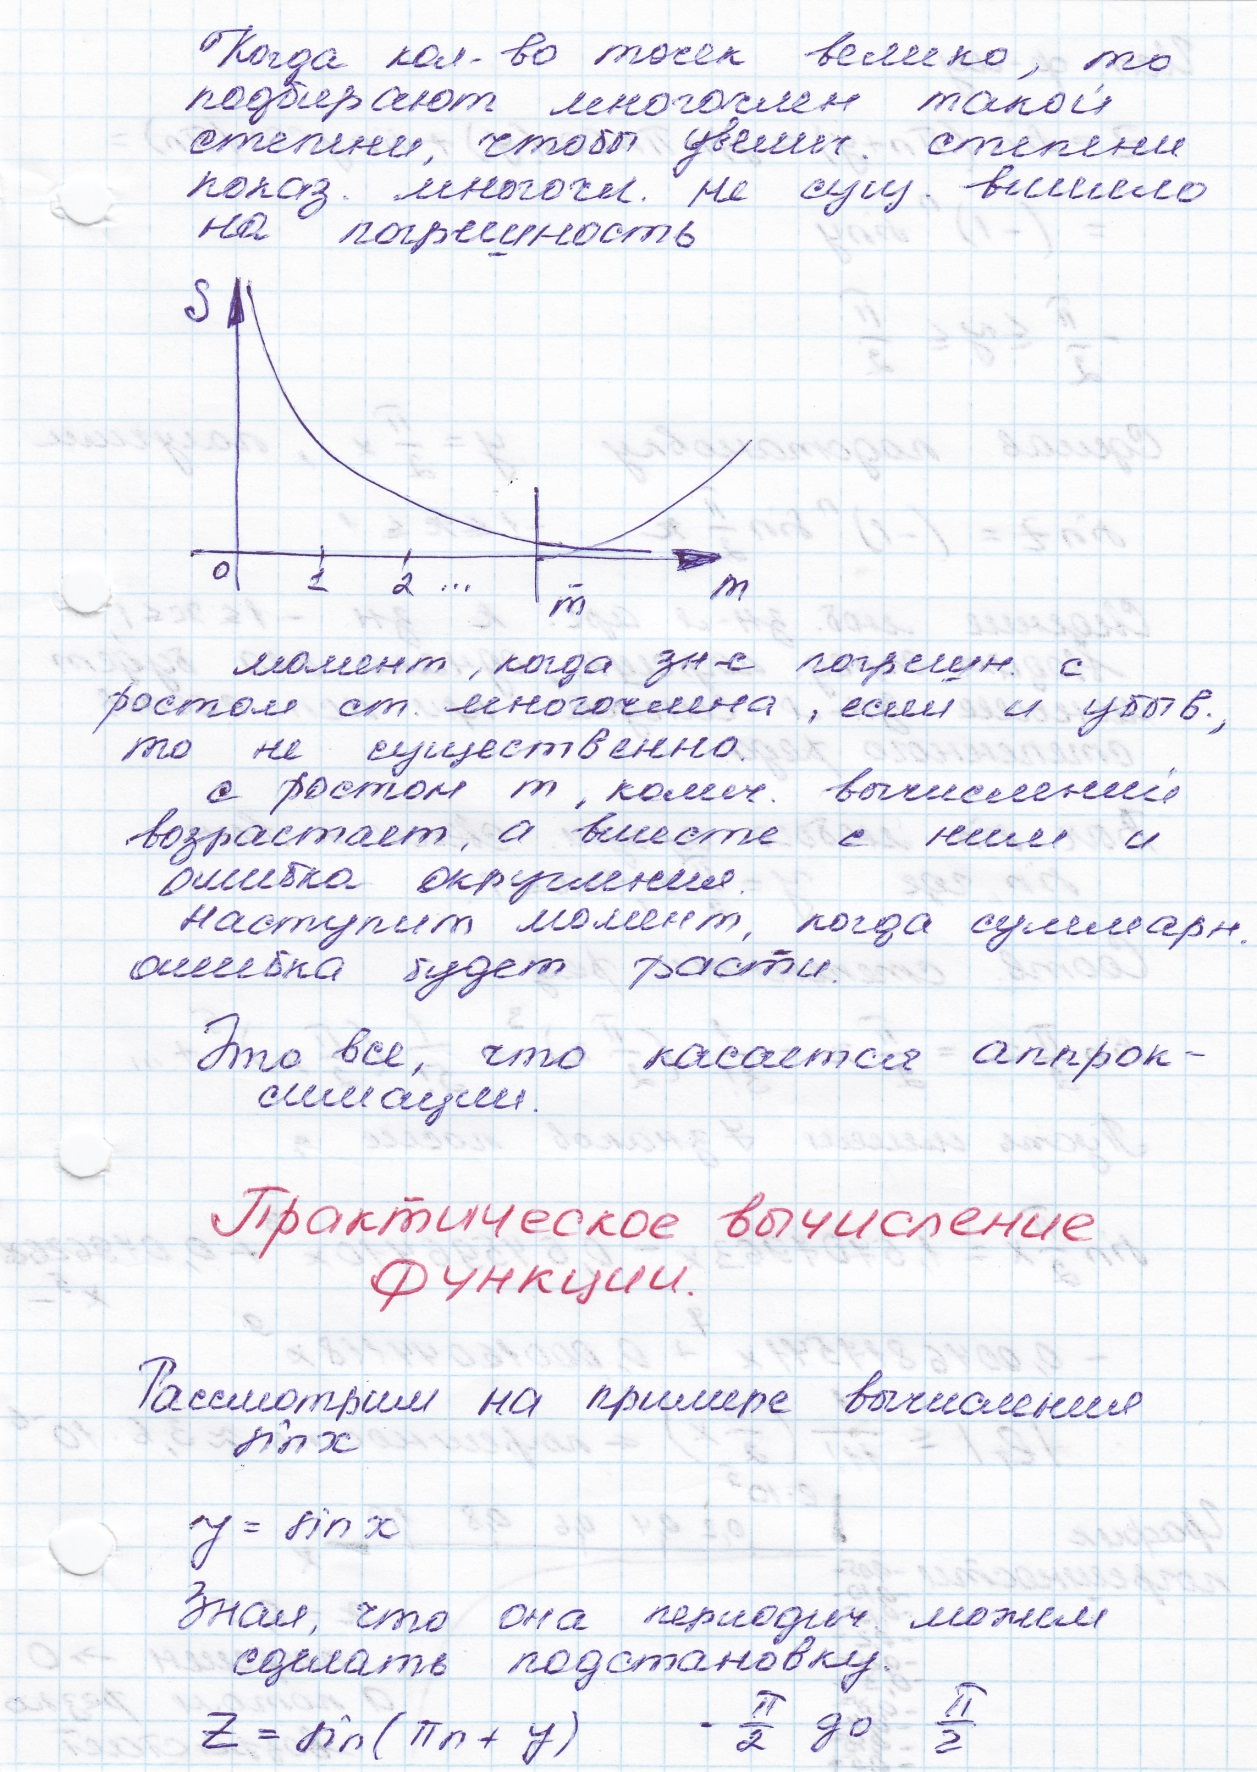 Когда кол-во точек велико, то
подбирают многочлен такой
степени, чтобы увелич. степени
показ. многочл. не сущ. влияло
на погрешность
S
0 1 2 ... m̄ m
момент, когда зн-е погрешн. с
ростом ст. многочлена, если и убыв.,
то не существенно.
с ростом m, колич. вычислений
возрастает, а вместе с ним и
ошибка округления.
Наступит момент, когда суммарн.
ошибка будет расти.
Это все, что касается аппрок-
симации.
Практическое вычисление
функции.
Рассмотрим на примере вычисления
sin x
y = sin x
Зная, что она периодич. можем
сделать подстановку.
Z = sin(πn + y) - π/2 до π/2